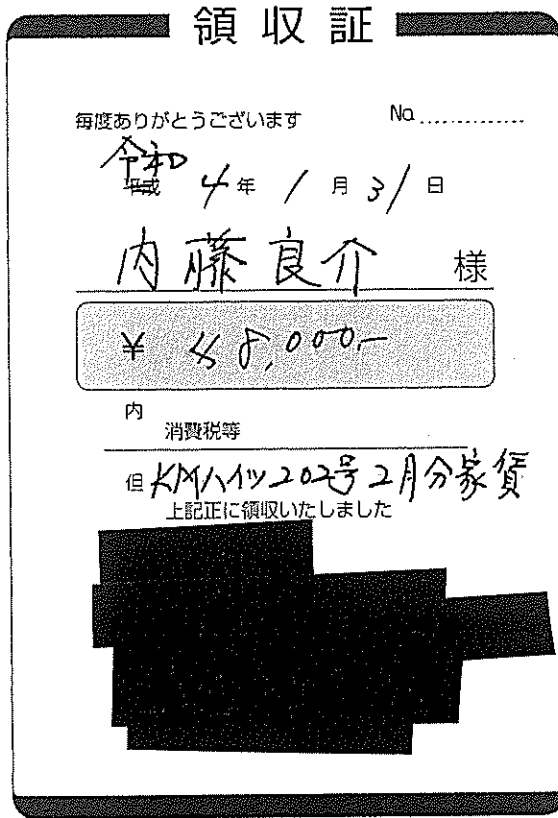 領収証
毎度ありがとうございます No.............
令和
平成 4年 1月 31日
内藤良介 様
¥ 48,000.-
内
消費税等
但 KMハイツ202号2月分家賃
上記正に領収いたしました